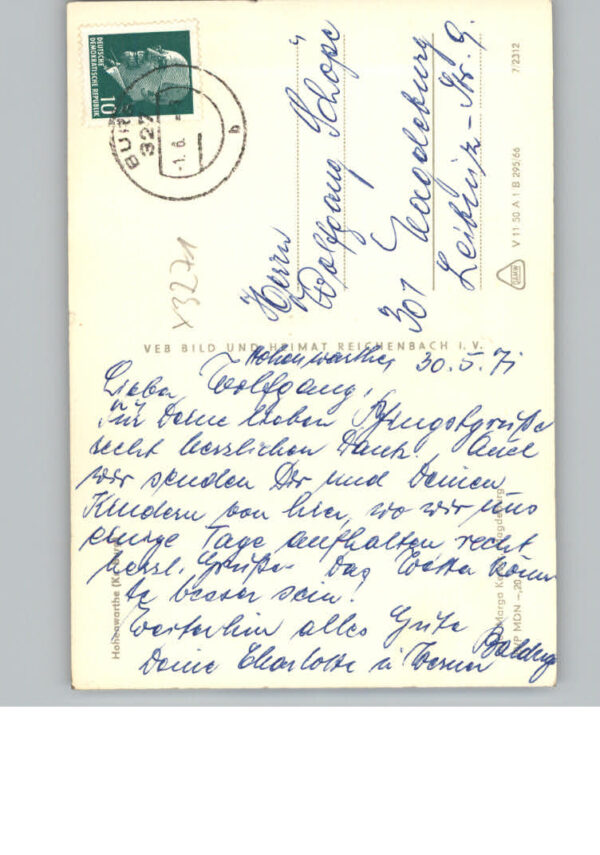 DEUTSCHE
DEMOKRATISCHE REPUBLIK
10
BURG
327
-1.6.
b
x3271
Herrn
Wolfgang Schope
301 Magdeburg
Leibniz-Str. 9.
7/2312
V 11 50 A 1 B 295/66
VEB BILD UND HEIMAT REICHENBACH I. V.
Hohenwarthe, 30.5.71
Lieber Wolfgang,
Für Deine lieben Pfingstgrüße
recht herzlichen Dank. Auch
wir senden Dir und Deinen
Kindern von hier, wo wir uns
einige Tage aufhalten recht
herzl. Grüße. Das Wetter könn
te besser sein!
Weiterhin alles Gute
Deine Charlotte u. Werner
Hohenwarthe
Magdeburg
MDN -,20